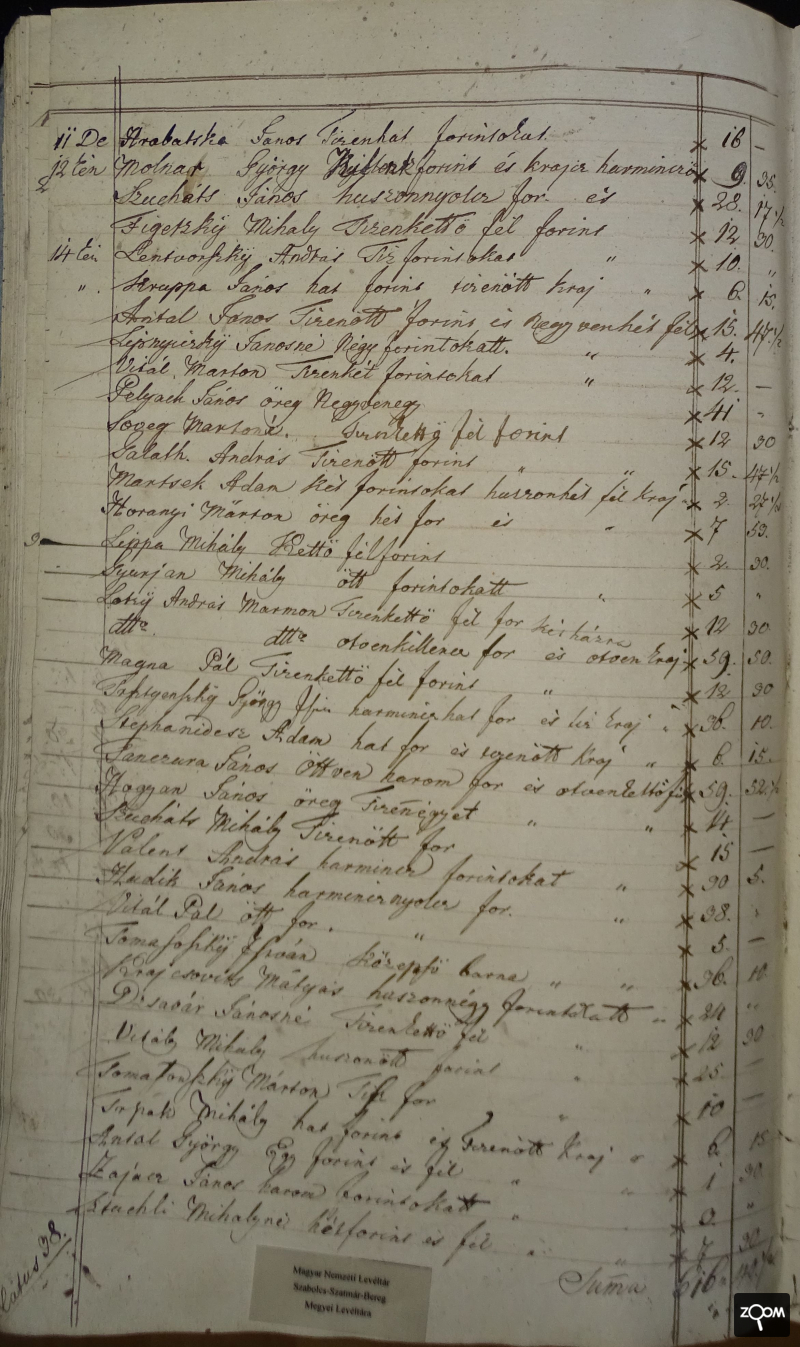 11 De Hrabatska Janos Tizenhat forintokat × 16 —
12 tén Molnar György Killencz forint és krajcz harmincz × 9. 35.
Szucháts János huszonnyolcz for. és × 28. 17 ½
Figetzkÿ Mihaly Tizenkettö fél forint × 12 30.
14 tén Lentvorszkÿ András Tiz forintokat " × 10. "
" Kruppa János hat forint tizenött kraj " × 6. 15.
Antal János Tizenött forint és Negyvenhét fél × 15. 47 ½
Jánosné Négy forintokatt. " × 4.
Vitál Marton Tizenkét forintokat " × 12 —
Palyach János öreg Negyvenegy × 41 "
Martoné. Tizenkettö fél forint × 12 30
Salath. András Tizenött forint " " × 15. 47 ½
Martsek Adam két forintokat huszonhét fél kraj × 2. 27 ½
Horanyi Márton öreg hét for és " × 7 53.
Lippa Mihály Kettö fél forint × 2 30.
Gyurjan Mihály ött forintokatt " × 5 "
András Marmon Tizenkettö fél for × 12 30
dtto. dtto ötvenkillencz for és ötven kraj × 59. 50.
Magna Pál Tizenkettö fél forint " × 12 30
György harminczhat for és tiz kraj " × 36. 10.
Stephanidesz Adam hat for és tizenött kraj " × 6. 15.
János Öttven harom for és × 59. 52 ½
Hogyan János öreg Tizennégyet " " × 14 —
Szucháts Mihály Tizenött for × 15 —
Valent András harmincz forintokat " × 30 5.
Hudik János harmincznyolcz for. " × 38. "
Vitál Pál ött for. " × 5. —
középsö barna " " × 36. 10
Krajcsovits Mátyás huszonnégy forintokatt " × 24 "
Jánosné Tizenkettö fél " × 12 30
Vitály Mihaly huszonött forint " × 25. —
Márton Tiz for " × 10 —
Trpák Mihály hat forint és Tizenött Kraj " × 6. 15
Antal György Egy forint és fél " " × 1 30.
Zajacz János harom forintokatt " × 3. "
Mihalyné hétforint és fél " " × 7 30
Latus 38.
Suma 616
Magyar Nemzeti Levéltár
Szabolcs-Szatmár-Bereg
Megyei Levéltára
ZOOM